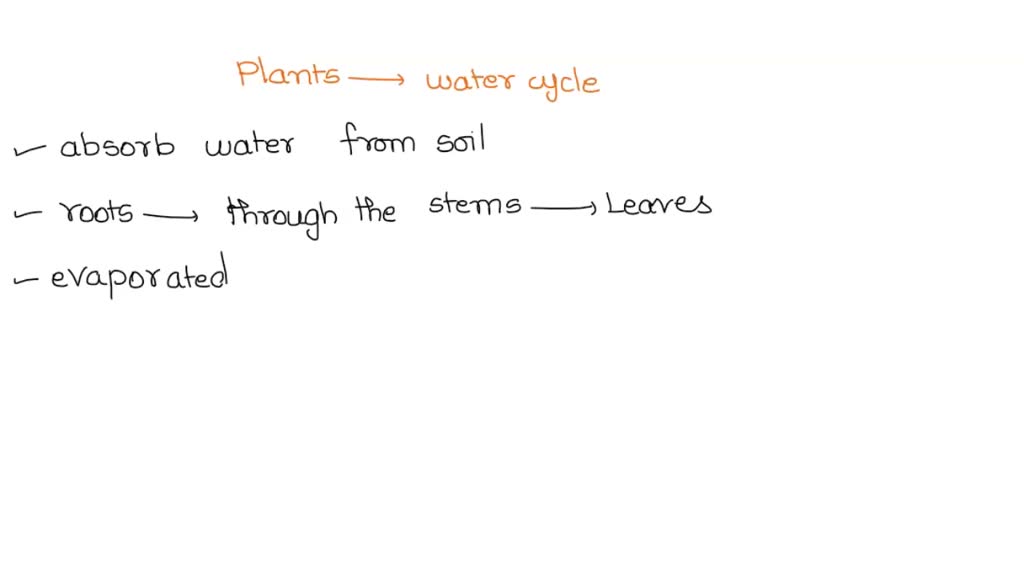 Plants → water cycle
✓ absorb water from soil
✓ roots → through the stems → Leaves
✓ evaporated